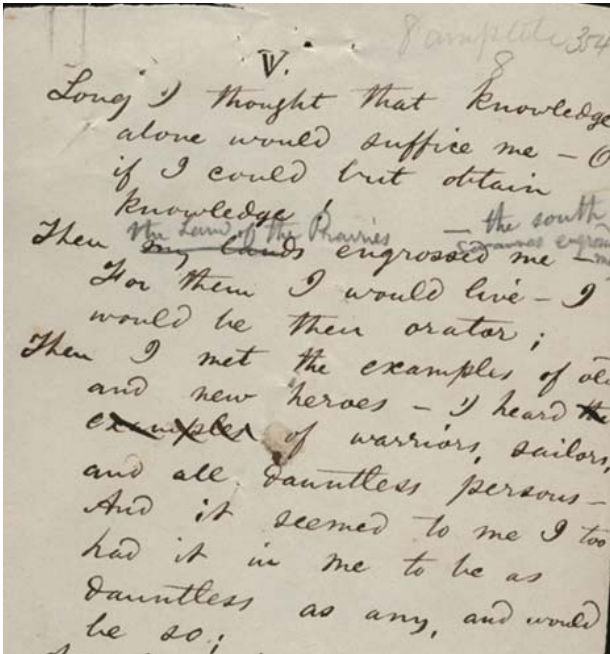 354
8
V.
Long I thought that knowledge
alone would suffice me — O
if I could but obtain
knowledge!
the Land of the Prairies — the south
savannas engrossed
Then my lands engrossed me —
For them I would live — I
would be their orator;
Then I met the examples of old
and new heroes — I heard the
examples of warriors, sailors,
and all dauntless persons —
And it seemed to me I too
had it in me to be as
dauntless as any, and would
be so;